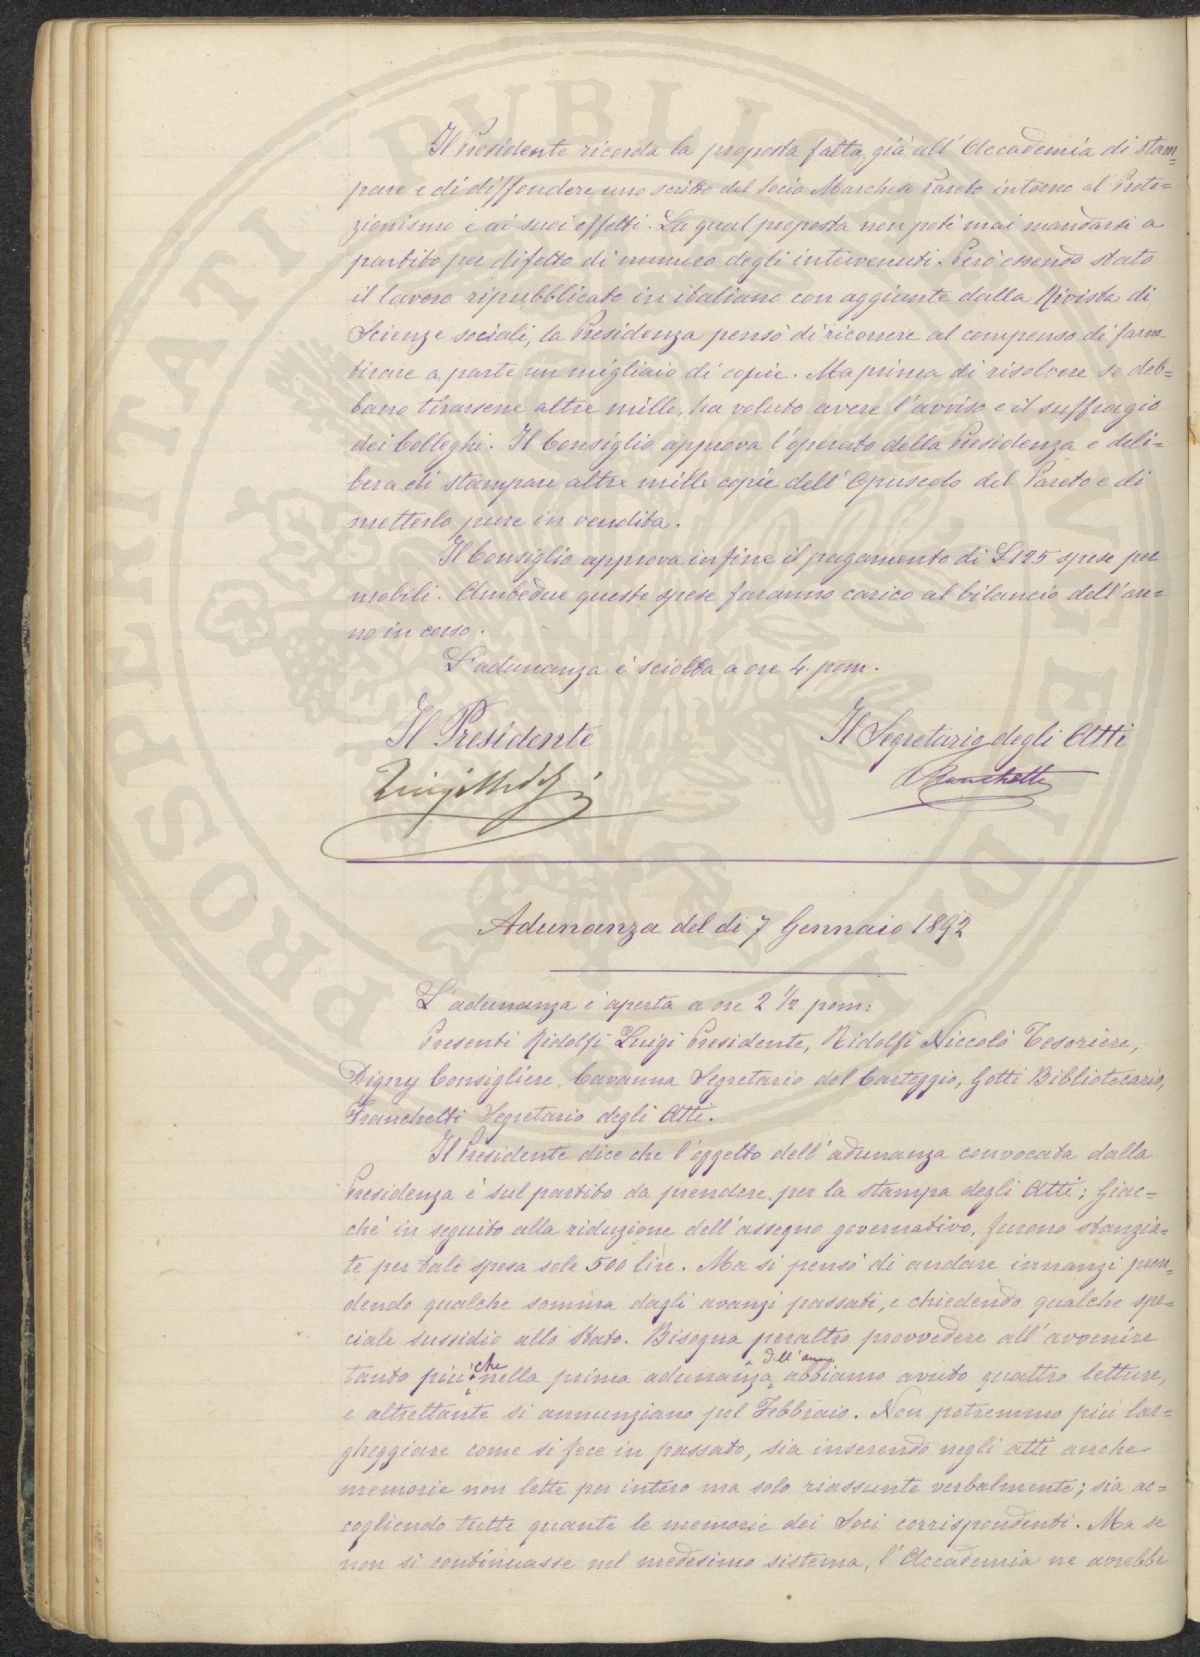 Il Presidente ricorda la proposta fatta già all'Accademia di stam=
pare e di diffondere uno scritto del Socio Marchese Pareto intorno al Prote=
zionismo e ai suoi effetti. La qual proposta non poté mai mandarsi a
partito per difetto di numero degli intervenuti. Però essendo stato
il lavoro ripubblicato in italiano con aggiunte dalla Rivista di
Scienze sociali, la Presidenza pensò di ricorrere al compenso di farne
tirare a parte un migliaio di copie. Ma prima di risolvere se deb=
bano tirarsene altre mille, ha voluto avere l'avviso e il suffragio
dei Colleghi. Il Consiglio approva l'operato della Presidenza e deli=
bera di stampare altre mille copie dell'Opuscolo del Pareto e di
metterlo pure in vendita.
Il Consiglio approva infine il pagamento di L 125 spese per
mobili. Ambedue queste spese faranno carico al bilancio dell'an=
no in corso.
L'adunanza è sciolta a ore 4. pom.
Il Presidente
Il Segretario degli Atti
Luigi Ridolfi
A Franchetti
Adunanza del dì 7 Gennaio 1892
L'adunanza è aperta a ore 2 1/2 pom:
Presenti Ridolfi Luigi Presidente, Ridolfi Niccolò Tesoriere,
Digny Consigliere, Cavanna Segretario del Carteggio, Gotti Bibliotecario,
Franchetti Segretario degli Atti.
Il Presidente dice che l'oggetto dell'adunanza convocata dalla
Presidenza è sul partito da prendere per la stampa degli Atti; Giac=
ché in seguito alla riduzione dell'assegno governativo, furono stanzia=
te per tale spesa sole 500 lire. Ma si pensò di andare innanzi pren=
dendo qualche somma dagli avanzi passati, e chiedendo qualche spe=
ciale sussidio allo Stato. Bisogna peraltro provvedere all'avvenire
tanto più che nella prima adunanza dell'anno abbiamo avuto quattro letture,
e altrettante si annunziano pel Febbraio. Non potremmo più lar=
gheggiare come si fece in passato, sia inserendo negli atti anche
memorie non lette per intero ma solo riassunte verbalmente; sia ac=
cogliendo tutte quante le memorie dei Soci corrispondenti. Ma se
non si continuasse nel medesimo sistema, l'Accademia ne avrebbe
PROSPERITATI PUBLICAE AUGENDAE